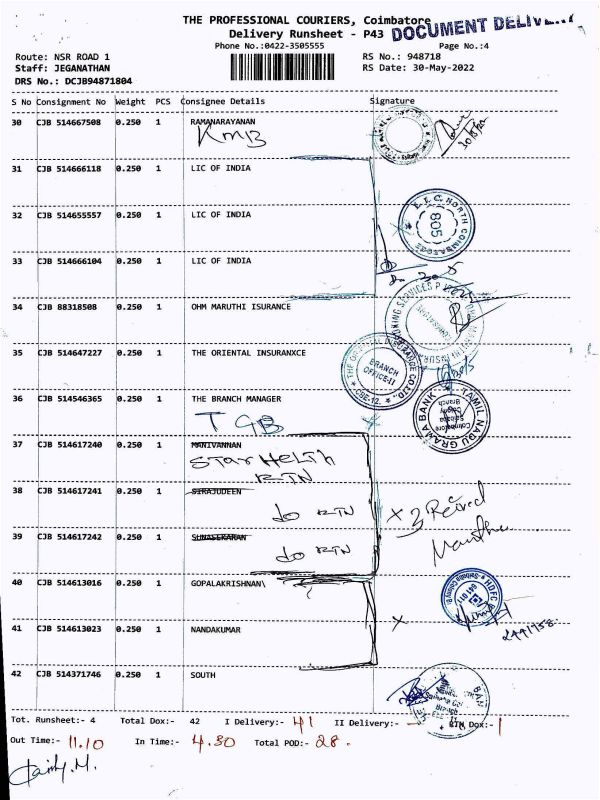 THE PROFESSIONAL COURIERS, Coimbatore
Delivery Runsheet - P43
DOCUMENT DELIVERY
Phone No.:0422-3505555
Page No.:4
Route: NSR ROAD 1
RS No.: 948718
Staff: JEGANATHAN
RS Date: 30-May-2022
DRS No.: DCJB94871804
S No Consignment No Weight PCS Consignee Details Signature
30 CJB 514667508 0.250 1 RAMANARAYAN
KMB
31 CJB 514666118 0.250 1 LIC OF INDIA
32 CJB 514655557 0.250 1 LIC OF INDIA
L.I.C. NORTH COIMBATORE
805
33 CJB 514666104 0.250 1 LIC OF INDIA
34 CJB 88318508 0.250 1 OHM MARUTHI ISURANCE
35 CJB 514647227 0.250 1 THE ORIENTAL INSURANXCE
THE ORIENTAL INSURANCE CO.LTD.
BRANCH
OFFICE-II
CBE-12.
36 CJB 514546365 0.250 1 THE BRANCH MANAGER
TGB
TAMIL NADU GRAMA BANK
Coimbatore
Saibaba
Colony
Branch
37 CJB 514617240 0.250 1 MANIVANNAN
Star Helth
RTN
38 CJB 514617241 0.250 1 SIRAJUDEEN
do RTN
x 3 Recived
39 CJB 514617242 0.250 1 SUNASEKARAN
do RTN
40 CJB 514613016 0.250 1 GOPALAKRISHNAN\
HDFC
41 CJB 514613023 0.250 1 NANDAKUMAR
x
42 CJB 514371746 0.250 1 SOUTH
Branch
Tot. Runsheet:- 4 Total Dox:- 42 I Delivery:- 41 II Delivery:- - RTN Dox:- 1
Out Time:- 11.10 In Time:- 4.30 Total POD:- 28.